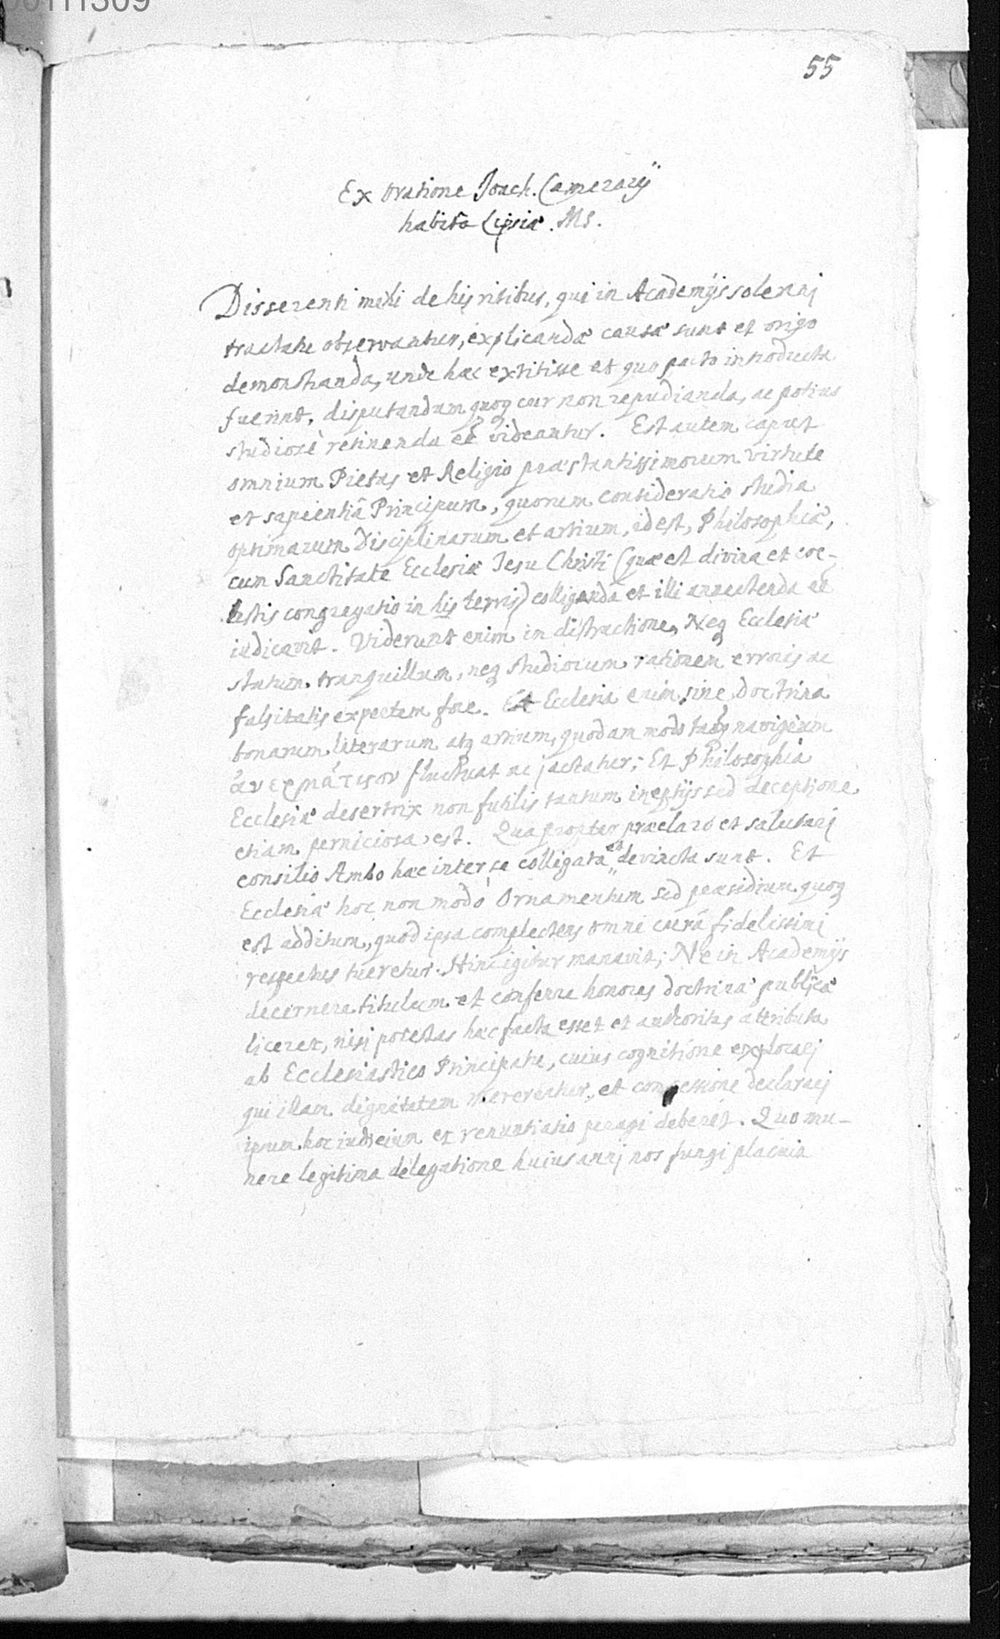 00111309
55
Ex oratione Joach. Camerarij
habita Lipsiæ. MS.
Disserenti mihi de his ritibus, qui in Academijs solenni
tractatu observantur, explicandæ causæ sunt et origo
demonstranda, unde hæc extitisse et quo pacto introducta
fuerint, disputandum quoq cur non repudianda, ac potius
studiosè retinenda eē videantur. Est autem caput
omnium Pietas et Religio præstantissimorum virtute
et sapientiâ Principum, quorum consideratio studia
optimarum Disciplinarum et artium, id est, Philosophiæ,
cum Sanctitate Ecclesiæ Jesu Christi (quæ est divina et coe-
lestis congregatio in his terris) colligenda et illi annectenda eē
iudicavit. Viderunt enim in distractione, Neq Ecclesiæ
statum tranquillum, neq studiorum rationem erroris ac
falsitatis expertem fore. Et Ecclesia enim sine doctrina
bonarum literarum atq artium, quodam modo tanq navigium
ἀνερμάτιστον fluctuat ac jactatur; Et Philosophia
Ecclesiæ desertrix non futilis tantum ineptijs sed deceptione
etiam perniciosa est. Quapropter præclaro et salutari
consilio Ambo hæc inter se colligata et devincta sunt. Et
Ecclesiæ hoc non modò Ornamentum sed præsidium quoq
est additum, quod ipsa complectens omni curâ fidelissimi
respectus tueretur. Hinc igitur manavit; Ne in Academijs
decernere titulum et conferre honores doctrinæ publicæ
liceret, nisi potestas hæc facta esset et authoritas attributa
ab Ecclesiastico Principatu, cuius cognitione explorari
qui illam dignitatem mererentur, et concessione declarari
ipsum hoc iudicium et renuntiatio peragi deberet. Quo mu-
nere legitima delegatione huius anni nos fungi placuit